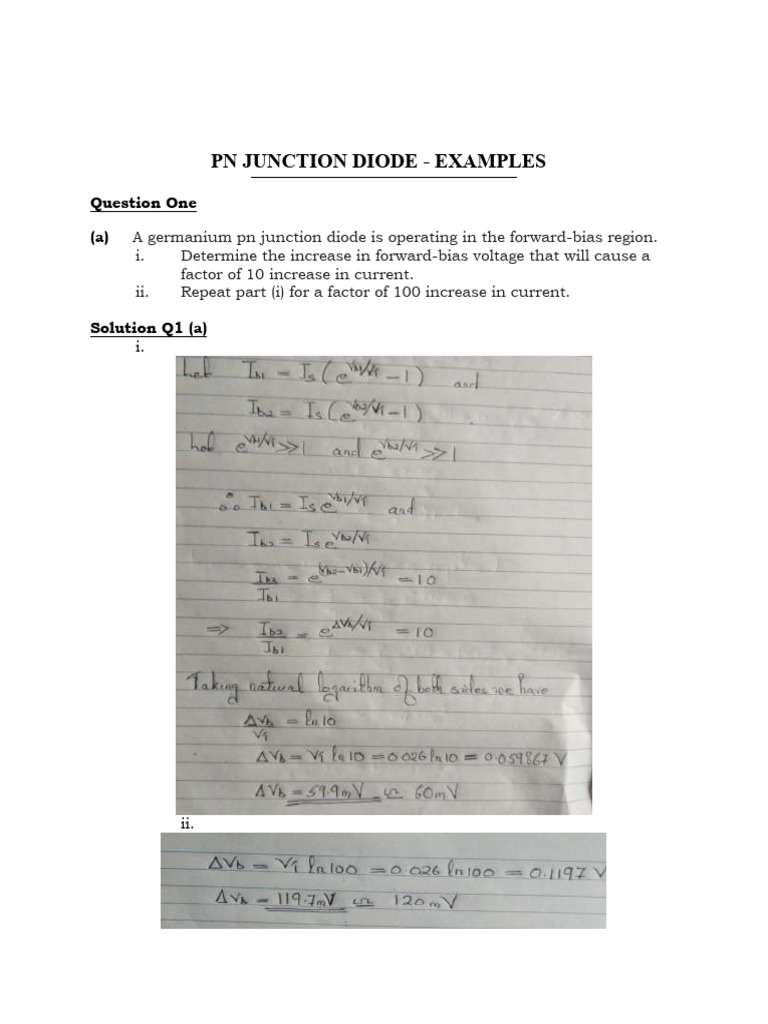 PN JUNCTION DIODE - EXAMPLES
Question One
(a) A germanium pn junction diode is operating in the forward-bias region.
i. Determine the increase in forward-bias voltage that will cause a
factor of 10 increase in current.
ii. Repeat part (i) for a factor of 100 increase in current.
Solution Q1 (a)
i.
Let I_b1 = I_s(e^{V_b1/V_i} - 1) and
I_b2 = I_s(e^{V_b2/V_i} - 1)
Let e^{V_b1/V_i} >> 1 and e^{V_b2/V_i} >> 1
∴ I_b1 = I_s e^{V_b1/V_i} and
I_b2 = I_s e^{V_b2/V_i}
I_b2/I_b1 = e^{(V_b2-V_b1)/V_i} = 10
⇒ I_b2/I_b1 = e^{ΔV_b/V_i} = 10
Taking natural logarithm of both sides we have
ΔV_b/V_i = ln 10
ΔV_b = V_i ln 10 = 0.026 ln 10 = 0.059867 V
ΔV_b = 59.9mV ≃ 60mV
ii.
ΔV_b = V_i ln 100 = 0.026 ln 100 = 0.1197 V
ΔV_b = 119.7mV ≃ 120mV